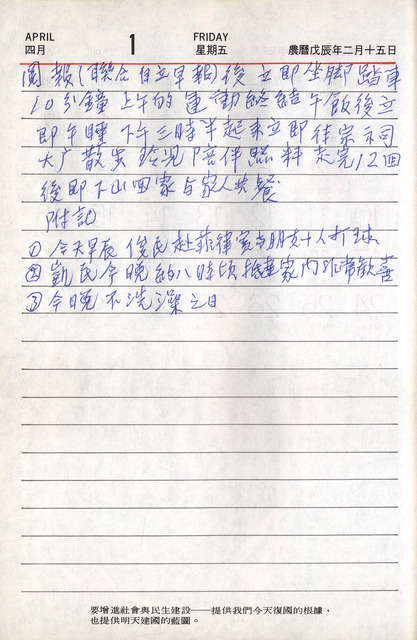 APRIL 1 FRIDAY
四月 星期五 農曆戊辰年二月十五日
閱報(聯合自立早報)後立即坐脚踏車
10分鐘上午的運動終結午飯後立
即午睡下午三時半起來立即往宗祠
大广散步 陪伴照料走完12回
後即下山回家与家人共餐
附記
①今天早辰俊民赴菲律賓与朋友十人打球
②凱民今晚約八時頃抵達家內非常歡喜
③今晚不洗澡之日
要增進社會與民生建設——提供我們今天復國的根據，
也提供明天建國的藍圖。